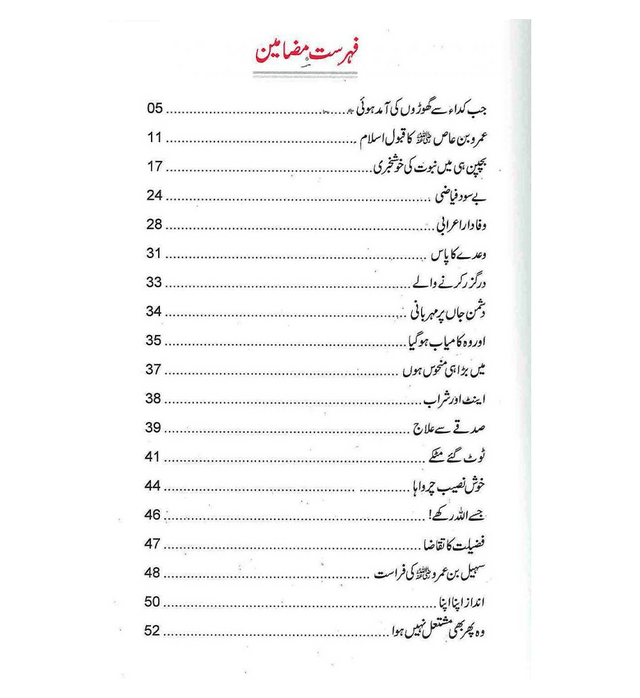 فہرست مضامین
جب کداء سے گھوڑوں کی آمد ہوئی ........ 05
عمرو بن عاص ﷺ کا قبول اسلام ........ 11
بچپن ہی میں نبوت کی خوشخبری ........ 17
بے سود فیاضی ........ 24
وفادار اعرابی ........ 28
وعدے کا پاس ........ 31
درگزر کرنے والے ........ 33
دشمن جاں پر مہربانی ........ 34
اور وہ کامیاب ہو گیا ........ 35
میں بڑا ہی منحوس ہوں ........ 37
اینٹ اور شراب ........ 38
صدقے سے علاج ........ 39
ٹوٹ گئے مٹکے ........ 41
خوش نصیب چرواہا ........ 44
جسے اللہ رکھے! ........ 46
فضیلت کا تقاضا ........ 47
سہیل بن عمرو ﷺ کی فراست ........ 48
انداز اپنا اپنا ........ 50
وہ پھر بھی مشتعل نہیں ہوا ........ 52